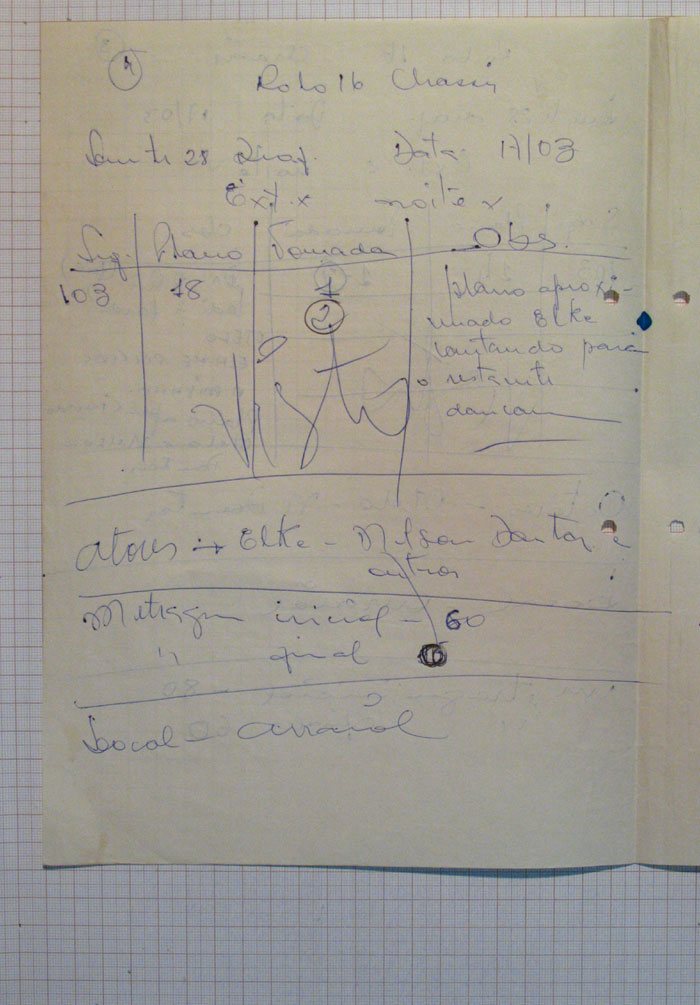 Rolo 16 Chassis
Lente 28 Data 17/03
Ext. x noite x
Seq. Plano Tomada Obs.
103 18 1 plano aproxi-
2 mado Elke
cantando para
o restante
dançam
Visto
Atores → Elke - Nelson Dantas e
outros
Metragem inicial - 60
" final
Local - Arraial